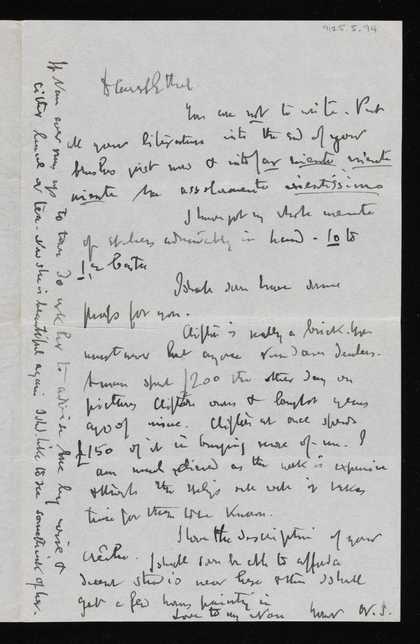 9125.5.94
Dearest Ethel
You are not to write. Put
all your literature into the end of your
brushes just now & into far niente niente
niente ma assolutamente nientissimo
I have got my whole menage
of sitters admirably in hand - 10 to
1 &
I shall soon have some
proofs for you.
Clifton is really a brick. You
must never let anyone run down dealers.
A man spent £200 the other day on
pictures Clifton owns & bought years
ago of mine. Clifton at once spends
£150 of it in buying more of me. I
am much relieved as the work is expensive
& though the things sell well it takes
time for them to be known.
I love the description of your
crèche. I shall soon be able to afford a
decent studio near here & then I shall
get a few hours painting in
Love to my Nan Yours W.S.
If Nan ever runs up to town do ask her to advise me by wire &
either lunch or tea. Now she is beautiful again I shd. like to see something of her.